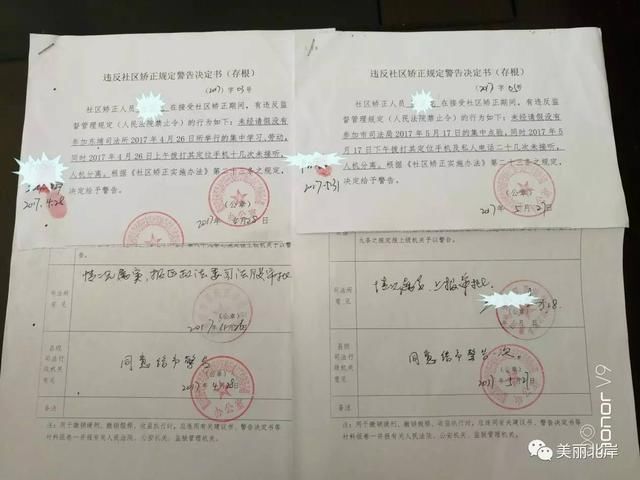 违反社区矫正规定警告决定书（存根）
（2017）字 03号
社区矫正人员
在接受社区矫正期间，有违反监
督管理规定（人民法院禁止令）的行为如下：未经请假没有
参加东靖司法所2017年4月26日所举行的集中学习、劳动，
同时2017年4月26日上午拨打其定位手机十几次未接听，
人机分离。根据《社区矫正实施办法》第二十三条之规定，
决定给予警告。
2017.4.28
（公章）
2017年4月28日
级机关予以警告。
司法所
意见
情况属实，报区政法委司法股审批
（公章）
县级
司法行
政机关
意见
同意给予警告
（公章）
2017年4月28日
备注
注：用于撤销缓刑、撤销假释、收监执行时，应连同有关建议书、警告决定书等
材料组卷一并报有关人民法院、公安机关、监狱管理机关。
违反社区矫正规定警告决定书（存根）
（2017）字 05号
社区矫正人员
在接受社区矫正期间，有违反监
督管理规定（人民法院禁止令）的行为如下：未经请假没有
参加市司法局2017年5月17日的集中点验，同时2017年5
月17日下午拨打其定位手机及私人电话二十几次未接听，
人机分离。根据《社区矫正实施办法》第二十三条之规定，
决定给予警告。
2017.5.31
（公章）
2017年5月27日
九条之规定报上级机关予以警告。
司法所
意见
情况属实，上报审批。
（公章）
县级
司法行
政机关
意见
同意给予警告一次。
（公章）
2017年5月27日
备注
注：用于撤销缓刑、撤销假释、收监执行时，应连同有关建议书、警告决定书等
材料组卷一并报有关人民法院、公安机关、监狱管理机关。
honor V9
美丽北岸